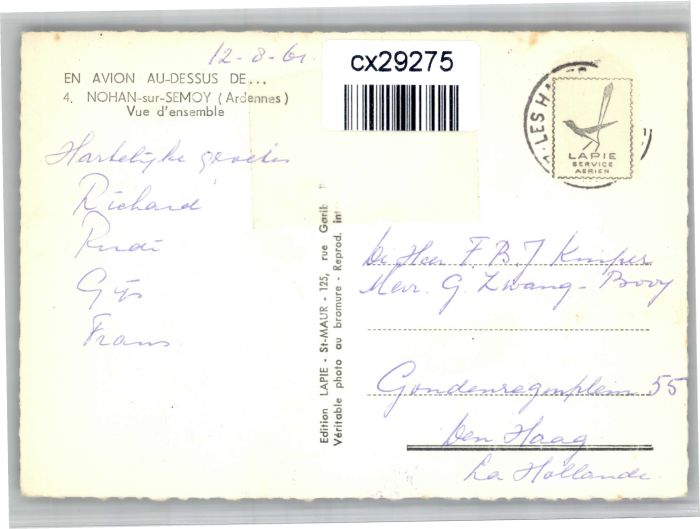 12-8-61.
cx29275
EN AVION AU-DESSUS DE...
4. NOHAN-sur-SEMOY (Ardennes)
Vue d'ensemble
Hartelijke groeten
Richard
Rudi
Gijs
Frans
Edition LAPIE - St-MAUR - 125, rue Garib
Véritable photo au bromure - Reprod. int
LES HA
LAPIE
SERVICE
AERIEN
De Heer F. B. J Kuiper
Mevr. G. Zwang-Booy
Goudenregenplein 55
Den Haag
La Hollande.